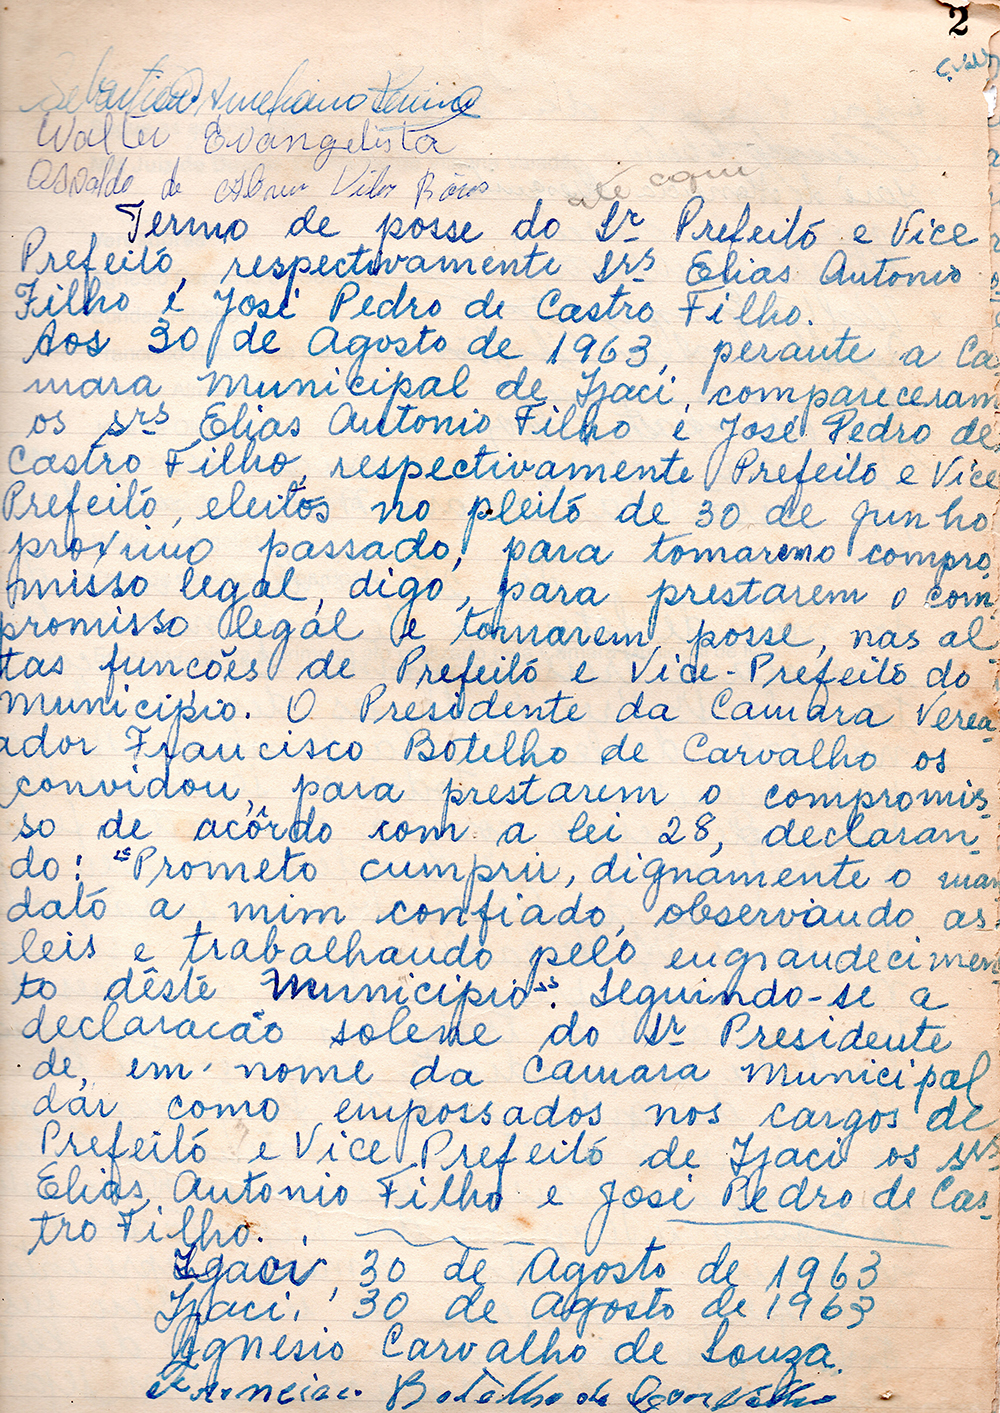 2
Walter Evangelista
Osvaldo de Vilas Bôas
até aqui
Termo de posse do Sr Prefeito e Vice
Prefeito, respectivamente srs Elias Antonio
Filho e José Pedro de Castro Filho.
Aos 30 de Agosto de 1963, perante a Ca-
mara Municipal de Ijaci, compareceram
os srs Elias Antonio Filho e José Pedro de
Castro Filho, respectivamente Prefeito e Vice
Prefeito, eleitos no pleito de 30 de Junho
proximo passado, para tomarem o compro
misso legal, digo, para prestarem o com-
promisso legal e tomarem posse, nas al-
tas funcões de Prefeito e Vice-Prefeito do
Municipio. O Presidente da Camara Verea-
ador Francisco Botelho de Carvalho os
convidou, para prestarem o compromis-
so de acôrdo com a lei 28, declaran-
do: "Prometo cumprir, dignamente o man
dato a mim confiado, observando as
leis e trabalhando pelo engrandecimen-
to dêste Municipio". Seguindo-se a
declaracão solene do Sr Presidente
de, em nome da Camara Municipal
dar como empossados nos cargos de
Prefeito e Vice Prefeito de Ijaci os srs
Elias Antonio Filho e José Pedro de Cas-
tro Filho.
Ijaci, 30 de Agosto de 1963
Ijaci, 30 de Agosto de 1963
Ignesio Carvalho de Souza.
Francisco Botelho de Carvalho